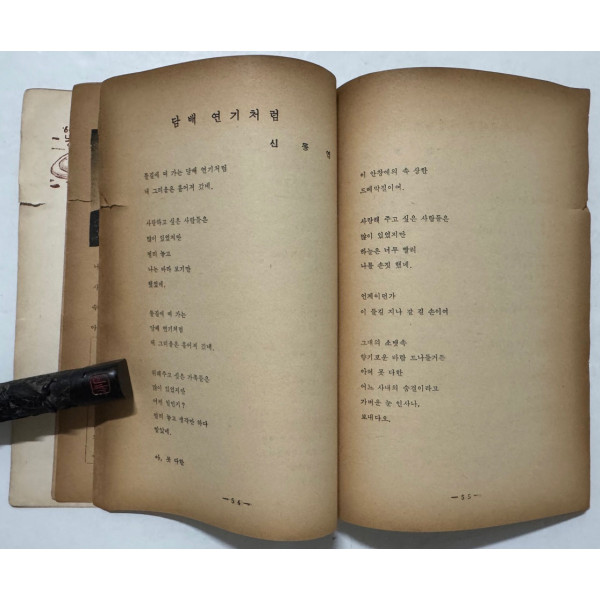 담배 연기처럼
신 동 엽
들길에 떠 가는 담배 연기처럼
내 그리움은 흩어져 갔네.
사랑하고 싶은 사람들은
많이 있었지만
멀리 놓고
나는 바라 보기만
했었네.
들길에 떠 가는
담배 연기처럼
내 그리움은 흩어져 갔네.
위해주고 싶은 가족들은
많이 있었지만
어쩐 일인지?
멀리 놓고 생각만 하다
말았네.
아, 못 다한
—54—
이 안창에의 속 상한
드레박질이여.
사랑해 주고 싶은 사람들은
많이 있었지만
하늘은 너무 빨리
나를 손짓 했네.
언제이던가
이 들길 지나 갈 길 손이여
그대의 소맷속
향기로운 바람 드나들거든
아퍼 못 다한
어느 사내의 숨결이라고
가벼운 눈 인사나,
보내다오.